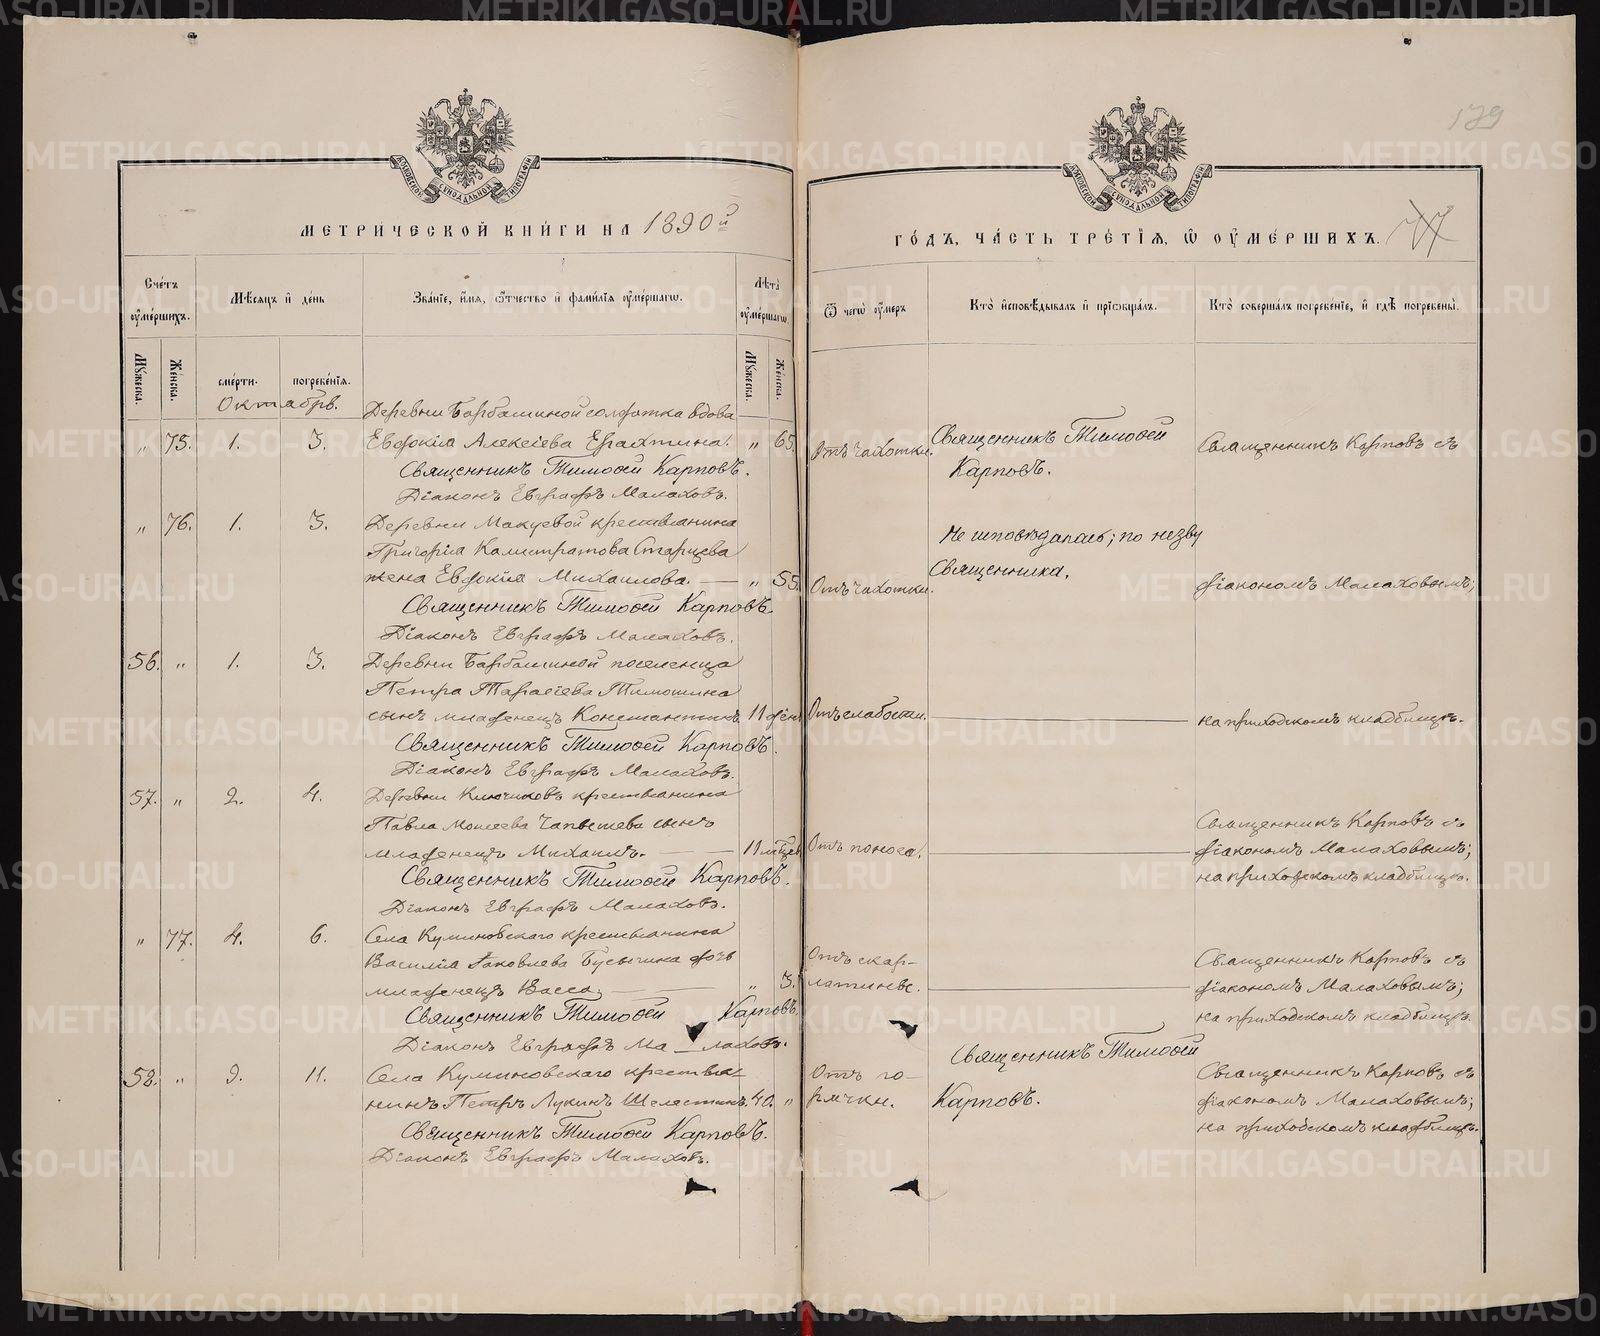 METRIKI.GASO-URAL.RU
179
МОСКОВСКОЙ СѴНОДАЛЬНОЙ ТИПОГРАФІИ
МОСКОВСКОЙ СѴНОДАЛЬНОЙ ТИПОГРАФІИ
МЕТРИЧЕСКОЙ КНИГИ НА 1890й
ГОДЪ, ЧАСТЬ ТРЕТІЯ, Ѿ ОУМЕРШИХЪ.
Счетъ оумершихъ.
Мѣсяцъ и день
Званіе, имя, ѿтчество и фамилія оумершагѡ.
Лѣта оумершагѡ.
Ѿ чегѡ оумеръ
Кто исповѣдывалъ и пріѡбщалъ.
Кто совершалъ погребеніе, и гдѣ погребены.
Мужеска. Женска. смерти. погребенія. Мужеска. Женска.
Октябрь.
Деревни Барбашиной солдатка вдова
„ 75. 1. 3. Евдокія Алексіева „ 65. Отъ чахотки. Священникъ Тимоѳей Карповъ. Священникъ Карповъ съ
Священникъ Тимоѳей Карповъ.
Діаконъ Евграфъ Малаховъ.
„ 76. 1. 3. Деревни Макуевой крестьянина
Григорія Калистратова Старцева
жена Евдокія Михаилова. „ 55. Отъ чахотки. Не исповѣдалась; по незву Священника. діакономъ Малаховымъ;
Священникъ Тимоѳей Карповъ.
Діаконъ Евграфъ Малаховъ.
56. „ 1. 3. Деревни Барбашиной поселенца
Петра Тарасіева Тимошина
сынъ младенецъ Константинъ 11 дён Отъ слабости. на приходскомъ кладбищѣ.
Священникъ Тимоѳей Карповъ.
Діаконъ Евграфъ Малаховъ.
57. „ 2. 4. Деревни Ключиковъ крестьянина
Павла Моисеева сынъ Священникъ Карповъ съ
младенецъ Михаилъ. 11 мѣцев Отъ поноса. діакономъ Малаховымъ;
Священникъ Тимоѳей Карповъ. на приходскомъ кладбищѣ.
Діаконъ Евграфъ Малаховъ.
„ 77. 4. 6. Села Куминовскаго крестьянина
Василія Іаковлева Бусыгина дочь Отъ скар- Священникъ Карповъ съ
младенецъ Васса, „ 3. латины. діакономъ Малаховымъ;
Священникъ Тимоѳей Карповъ. на приходскомъ кладбищѣ.
Діаконъ Евграфъ Малаховъ.
58. „ 9. 11. Села Куминовскаго крестья- Отъ го- Священникъ Тимоѳей Священникъ Карповъ съ
нинъ Петръ Лукинъ Шелястинъ. 40. „ рячки. Карповъ. діакономъ Малаховымъ;
Священникъ Тимоѳей Карповъ. на приходскомъ кладбищѣ.
Діаконъ Евграфъ Малаховъ.